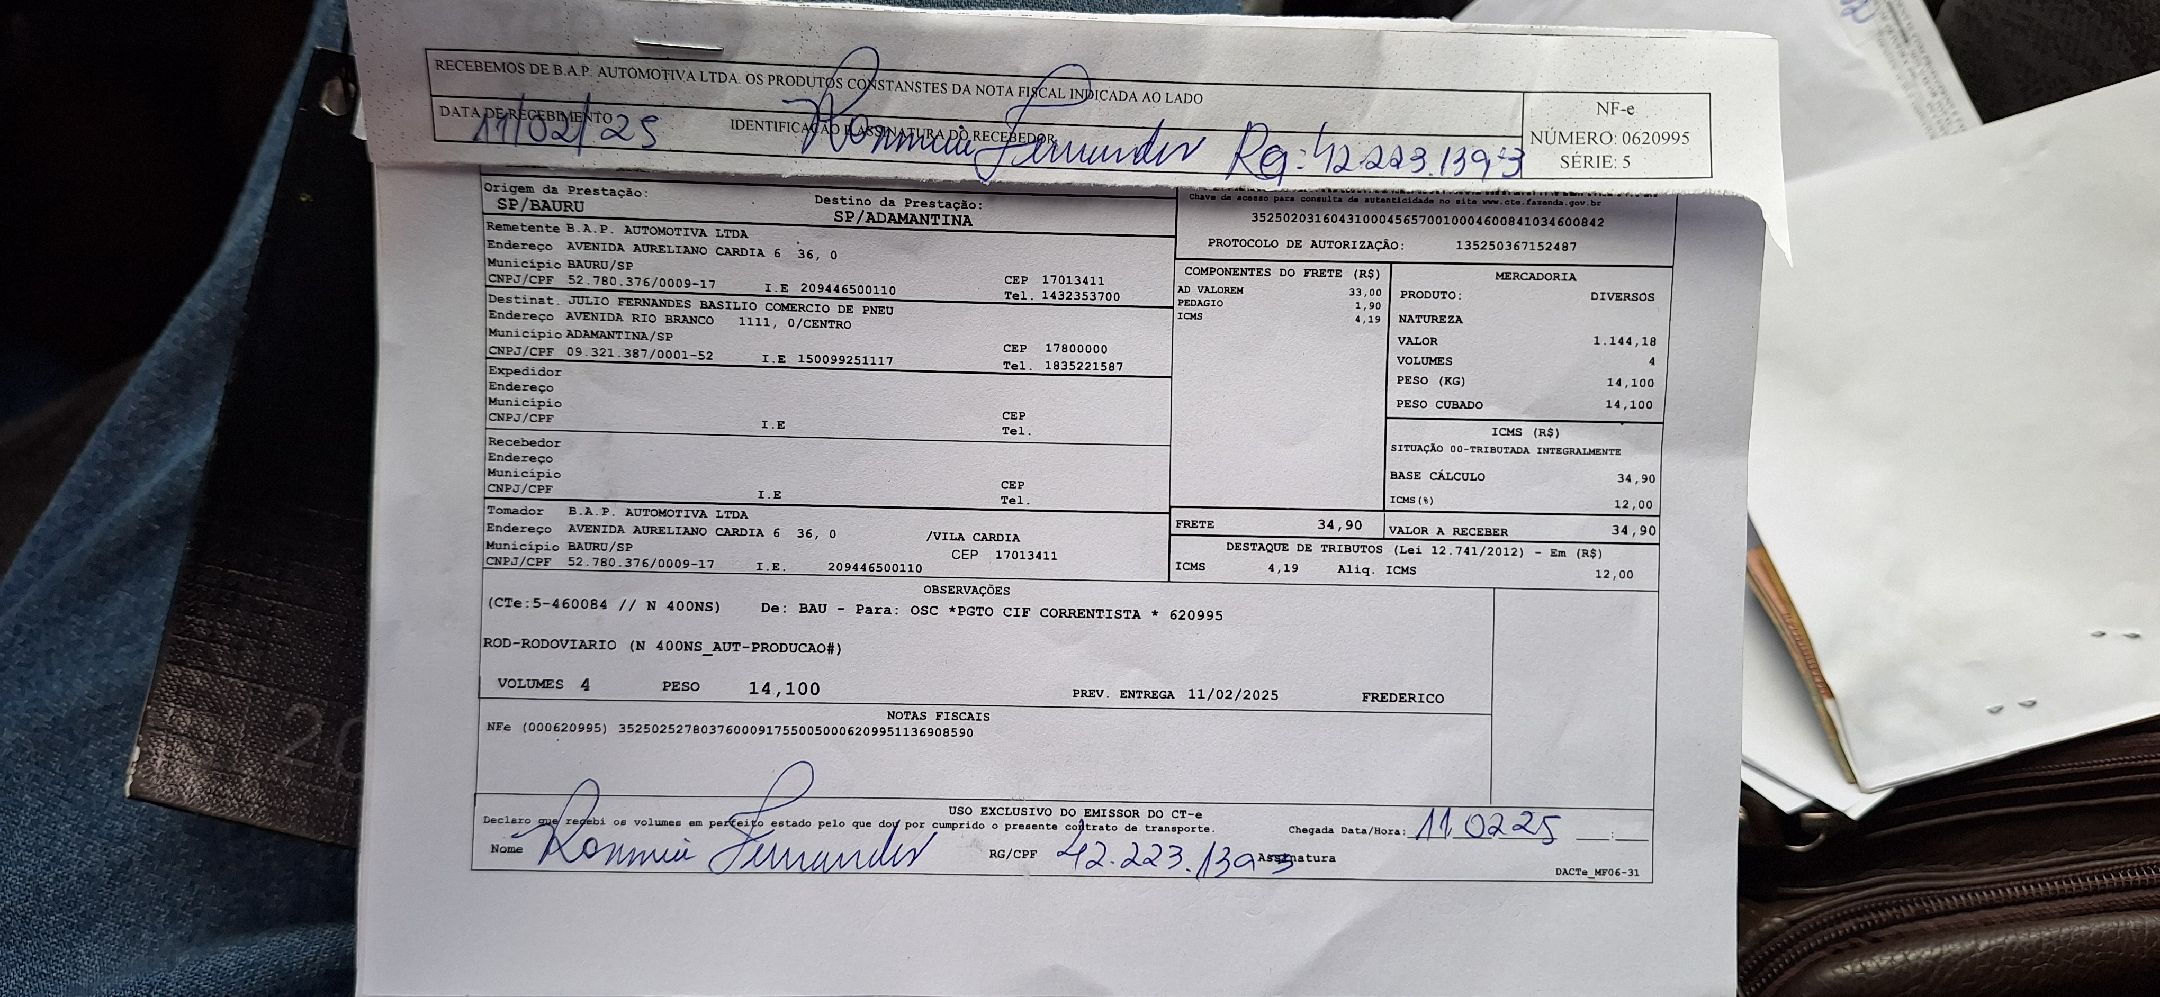 RECEBEMOS DE B.A.P. AUTOMOTIVA LTDA. OS PRODUTOS CONSTANSTES DA NOTA FISCAL INDICADA AO LADO
DATA DE RECEBIMENTO
11/02/25
IDENTIFICAÇÃO E ASSINATURA DO RECEBEDOR
Fernandes Rg: 42.223.139-3
NF-e
NÚMERO: 0620995
SÉRIE: 5
Origem da Prestação:
SP/BAURU
Destino da Prestação:
SP/ADAMANTINA
Chave de acesso para consulta de autenticidade no site www.cte.fazenda.gov.br
35250203160431000456570010004600841034600842
PROTOCOLO DE AUTORIZAÇÃO: 135250367152487
Remetente B.A.P. AUTOMOTIVA LTDA
Endereço AVENIDA AURELIANO CARDIA 6 36, 0
Município BAURU/SP CEP 17013411
CNPJ/CPF 52.780.376/0009-17 I.E 209446500110 Tel. 1432353700
Destinat. JULIO FERNANDES BASILIO COMERCIO DE PNEU
Endereço AVENIDA RIO BRANCO 1111, 0/CENTRO
Município ADAMANTINA/SP CEP 17800000
CNPJ/CPF 09.321.387/0001-52 I.E 150099251117 Tel. 1835221587
Expedidor
Endereço
Município CEP
CNPJ/CPF I.E Tel.
Recebedor
Endereço
Município CEP
CNPJ/CPF I.E Tel.
Tomador B.A.P. AUTOMOTIVA LTDA
Endereço AVENIDA AURELIANO CARDIA 6 36, 0 /VILA CARDIA
Município BAURU/SP CEP 17013411
CNPJ/CPF 52.780.376/0009-17 I.E. 209446500110
COMPONENTES DO FRETE (R$)
AD VALOREM 33,00
PEDAGIO 1,90
ICMS 4,19
MERCADORIA
PRODUTO: DIVERSOS
NATUREZA
VALOR 1.144,18
VOLUMES 4
PESO (KG) 14,100
PESO CUBADO 14,100
ICMS (R$)
SITUAÇÃO 00-TRIBUTADA INTEGRALMENTE
BASE CÁLCULO 34,90
ICMS(%) 12,00
FRETE 34,90
VALOR A RECEBER 34,90
DESTAQUE DE TRIBUTOS (Lei 12.741/2012) - Em (R$)
ICMS 4,19 Aliq. ICMS 12,00
OBSERVAÇÕES
(CTe:5-460084 // N 400NS) De: BAU - Para: OSC *PGTO CIF CORRENTISTA * 620995
ROD-RODOVIARIO (N 400NS_AUT-PRODUCAO#)
VOLUMES 4 PESO 14,100 PREV. ENTREGA 11/02/2025 FREDERICO
NOTAS FISCAIS
NFe (000620995) 35250252780376000917550050006209951136908590
USO EXCLUSIVO DO EMISSOR DO CT-e
Declaro que recebi os volumes em perfeito estado pelo que dou por cumprido o presente contrato de transporte.
Chegada Data/Hora: 11 02 25 __:__
Nome Fernandes RG/CPF 42.223.139-3 Assinatura
DACTe_MF06-31